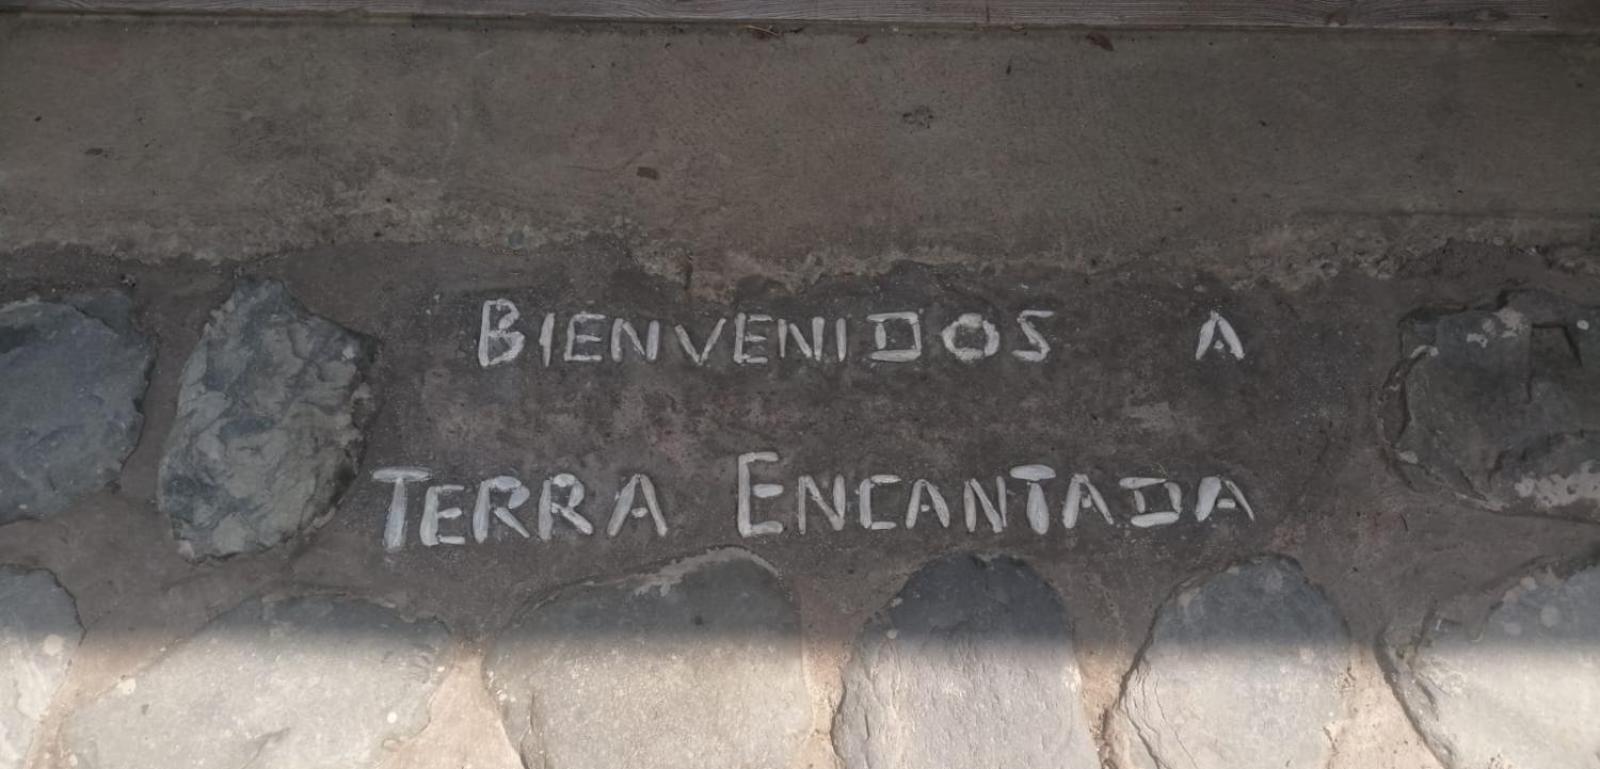 BIENVENIDOS A
TERRA ENCANTADA